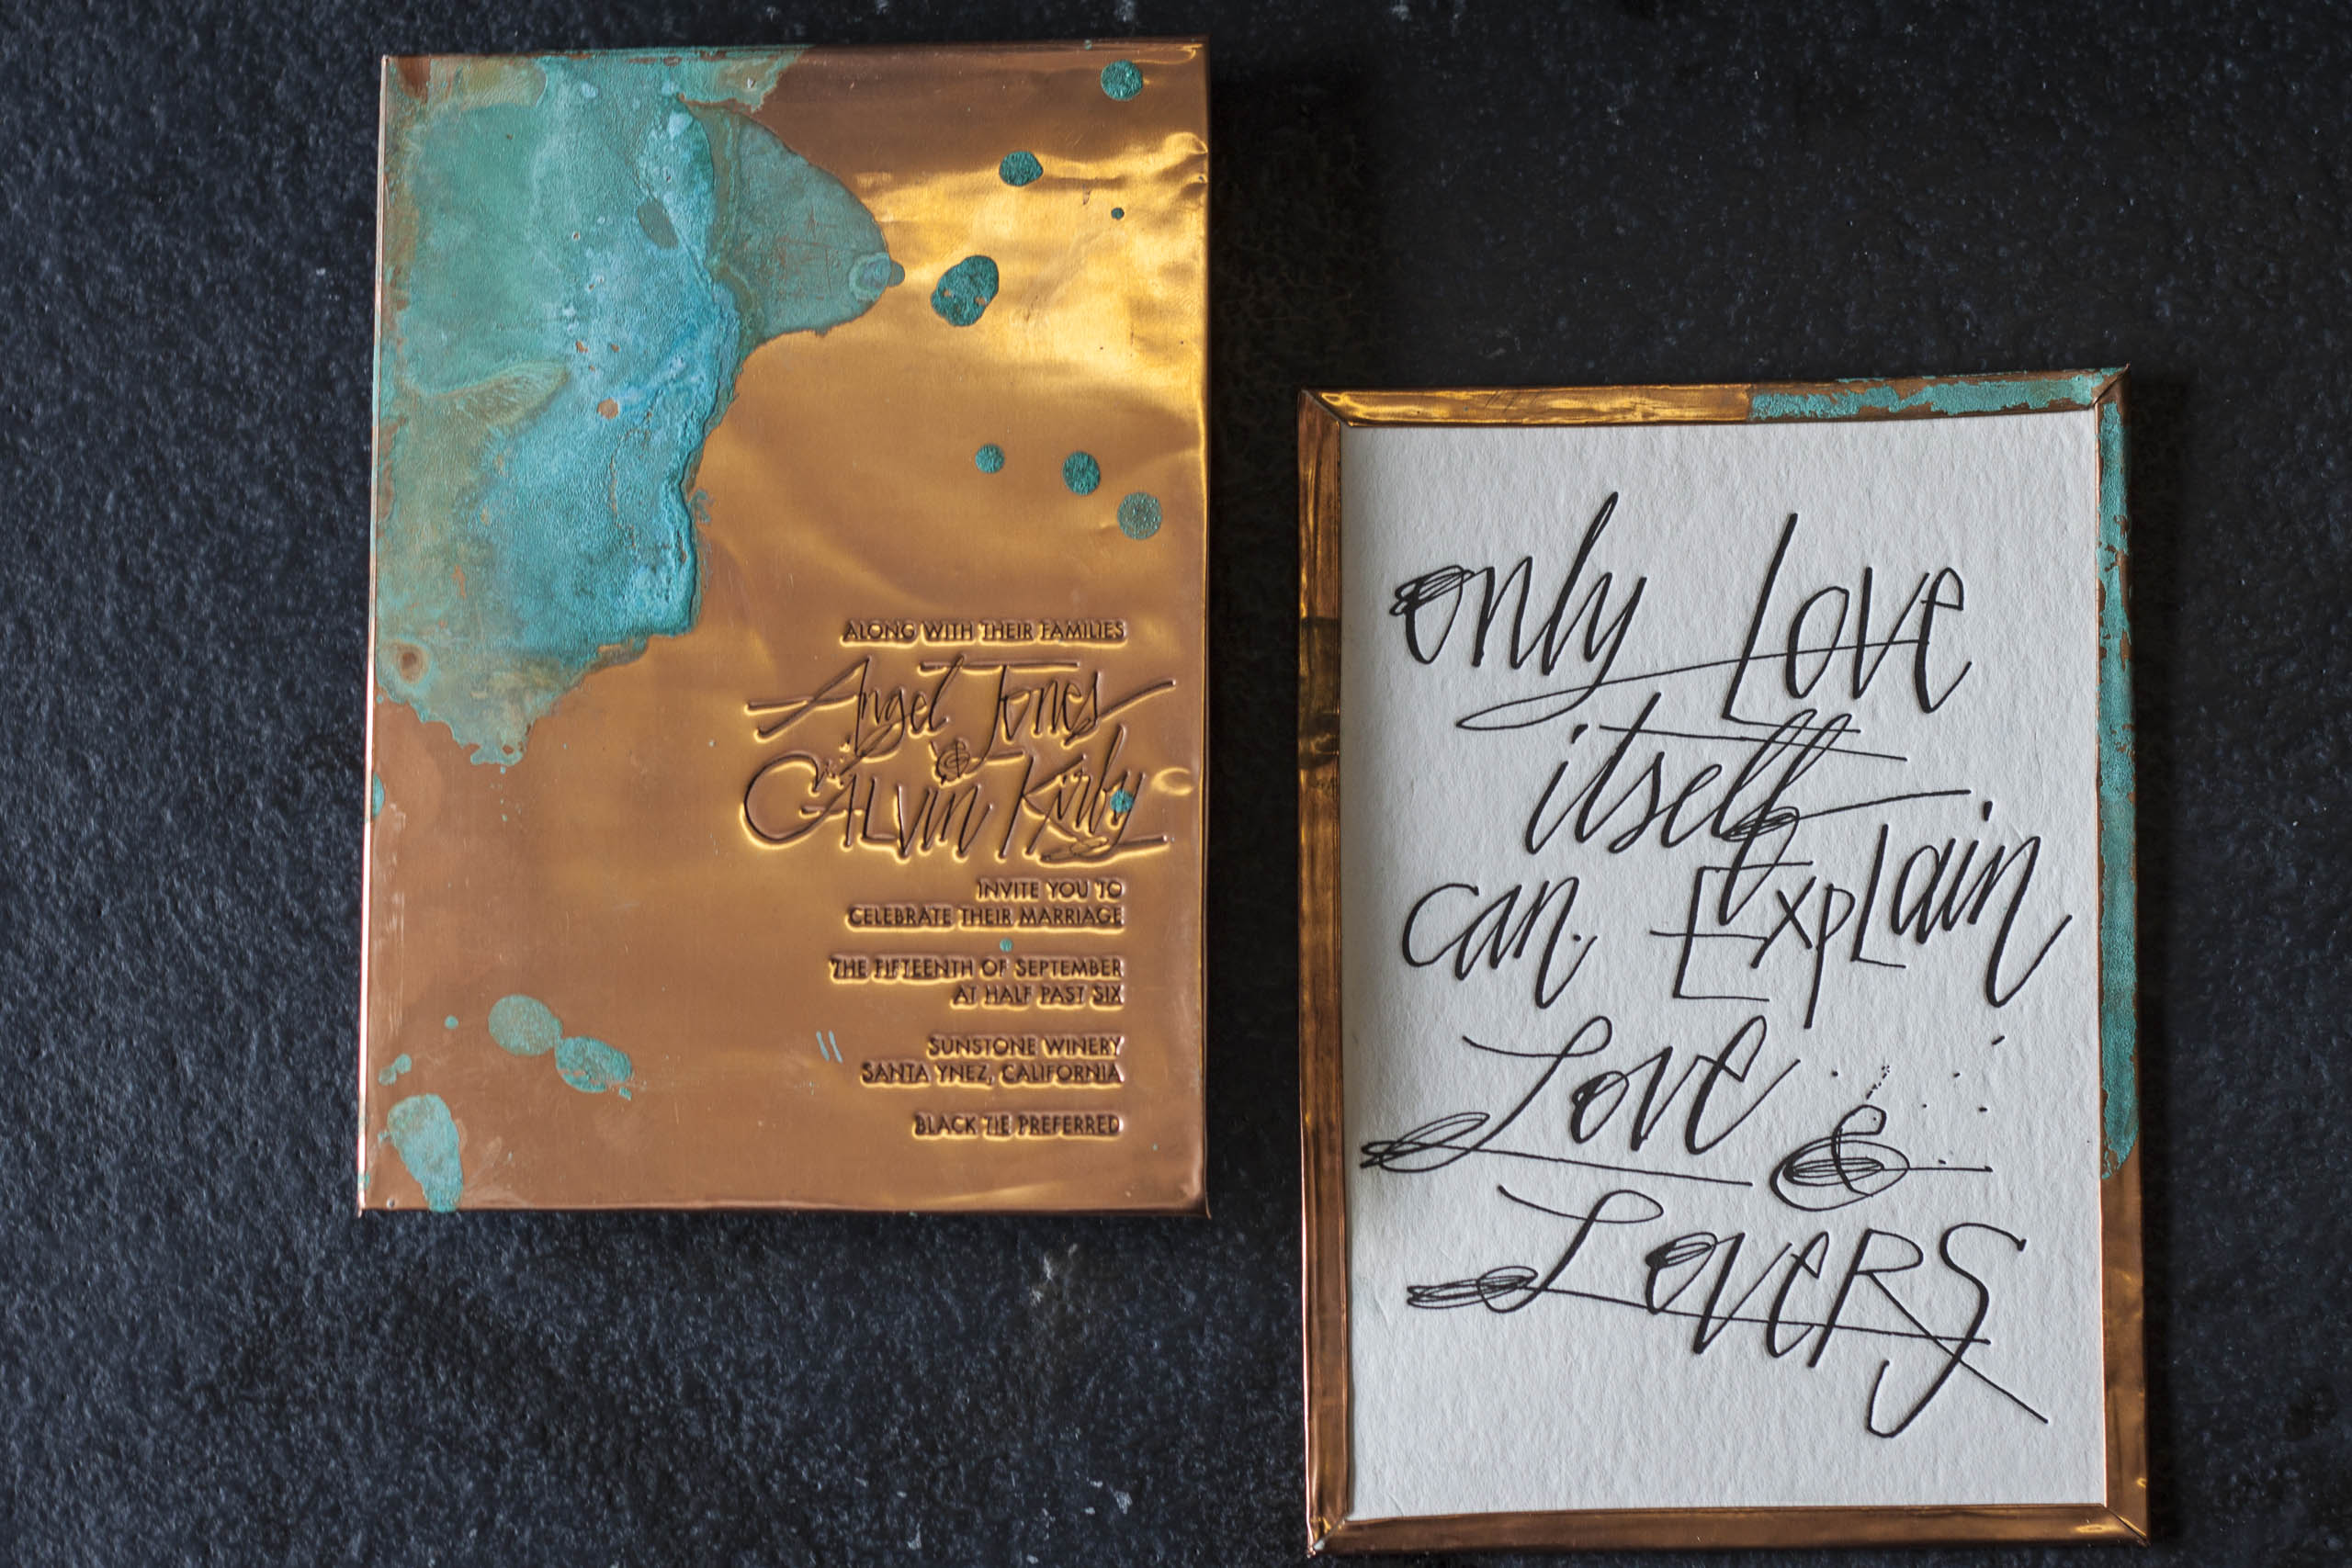 ALONG WITH THEIR FAMILIES
Angel Jones
&
CALVIN Kirby
INVITE YOU TO
CELEBRATE THEIR MARRIAGE
THE FIFTEENTH OF SEPTEMBER
AT HALF PAST SIX
SUNSTONE WINERY
SANTA YNEZ, CALIFORNIA
BLACK TIE PREFERRED
only Love
itself
can. ExpLain
Love &
LoveRS